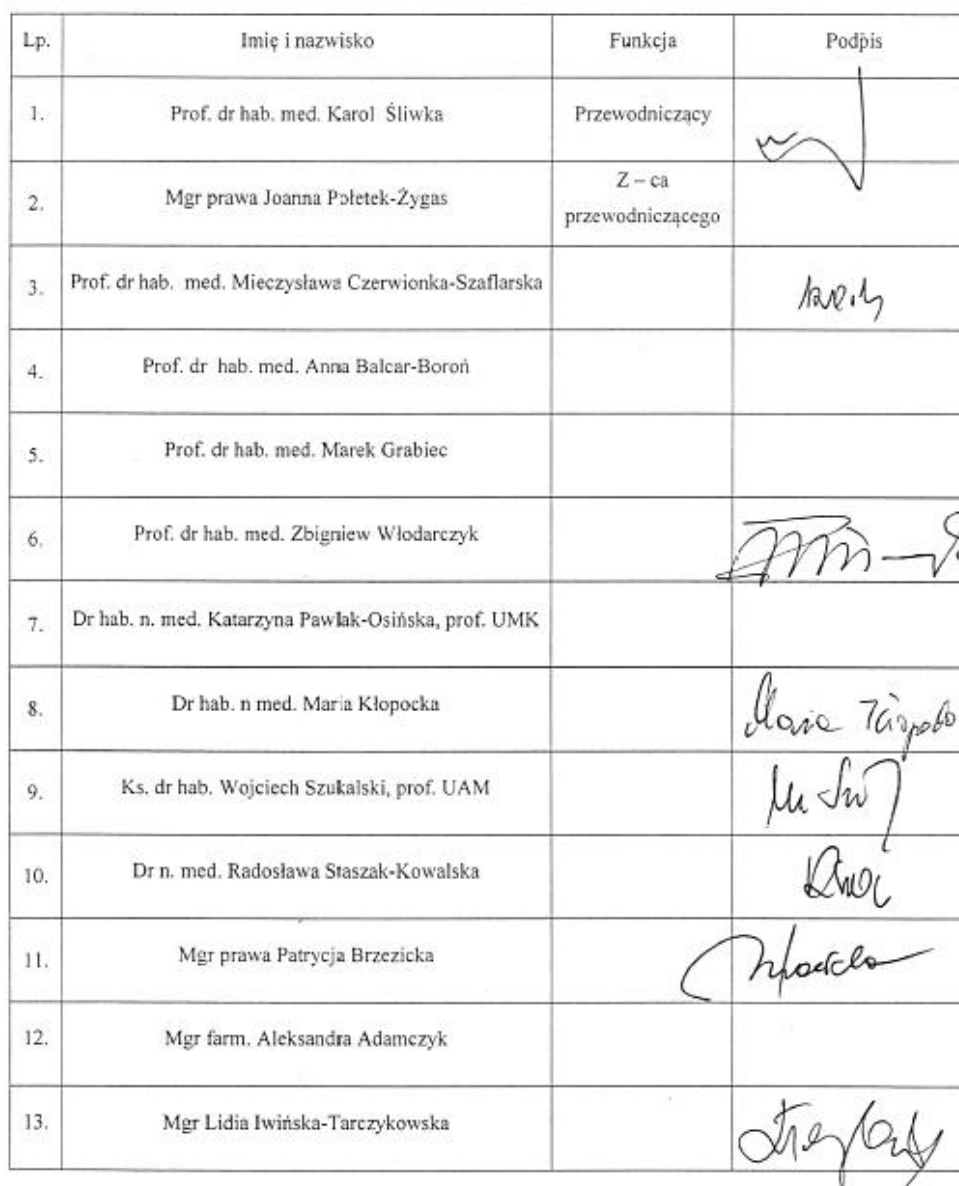 Lp. Imię i nazwisko Funkcja Podpis
1. Prof. dr hab. med. Karol Śliwka Przewodniczący
2. Mgr prawa Joanna Połetek-Żygas Z – ca przewodniczącego
3. Prof. dr hab. med. Mieczysława Czerwionka-Szaflarska
4. Prof. dr hab. med. Anna Balcar-Boroń
5. Prof. dr hab. med. Marek Grabiec
6. Prof. dr hab. med. Zbigniew Włodarczyk
7. Dr hab. n. med. Katarzyna Pawlak-Osińska, prof. UMK
8. Dr hab. n med. Maria Kłopocka
9. Ks. dr hab. Wojciech Szukalski, prof. UAM
10. Dr n. med. Radosława Staszak-Kowalska
11. Mgr prawa Patrycja Brzezicka
12. Mgr farm. Aleksandra Adamczyk
13. Mgr Lidia Iwińska-Tarczykowska